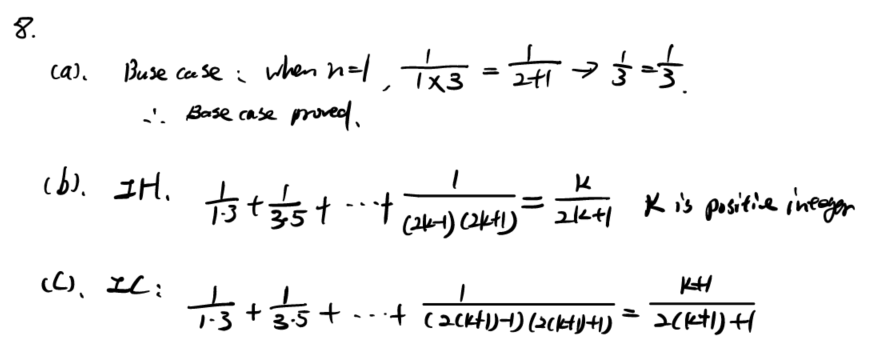 8.
(a). Base case : when n=1, 1/(1×3) = 1/(2+1) → 1/3 = 1/3.
∴ Base case proved.
(b). IH. 1/(1·3) + 1/(3·5) + ··· + 1/((2k-1)(2k+1)) = k/(2k+1) K is positive integer
(C). IC: 1/(1·3) + 1/(3·5) + ··· + 1/((2(k+1)-1)(2(k+1)+1)) = (k+1)/(2(k+1)+1)